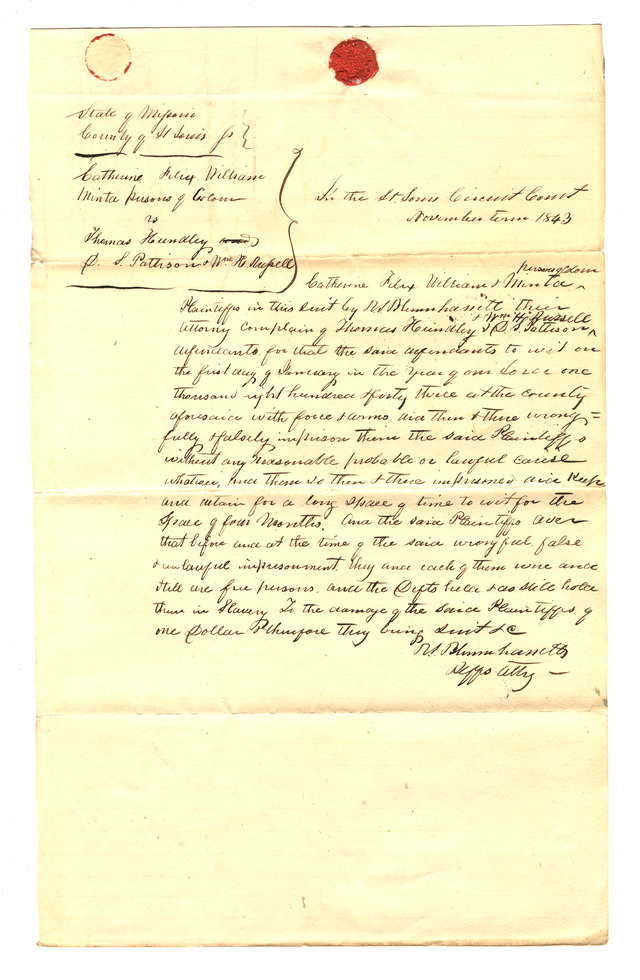 State of Missouri
County of St Louis ss
Catherine Felix William
Minta persons of Colour
vs
Thomas Hundley
D. S. Pattison & Wm H. Russell
In the St Louis Circuit Court
November term 1843
persons of colour
Catherine Felix William & Minta ^
Plaintiffs in this suit by R S Blennhassett their
& Wm H. Russell
Attorney Complain of Thomas Hundley & D. S. Pattison ^
defendants for that the said defendants to wit on
the first day of January in the Year of our Lord one
thousand eight hundred & forty three at the county
aforesaid with force & arms did then & there wrong=
fully & falsely imprison them the said Plaintiffs
without any reasonable probable or lawful cause
whatever, and them so then & there imprisoned did Keep
and detain for a long space of time to wit for the
space of four Months. And the said Plaintiffs aver
that before and at the time of the said wrongful false
& unlawful imprisonment they and each of them were and
still are free persons. and the Defts held & do still hold
them in Slavery To the damage of the said Plaintiffs of
one Dollar & therefore they bring suit &c
R S Blennhassett
Plffs Atty —